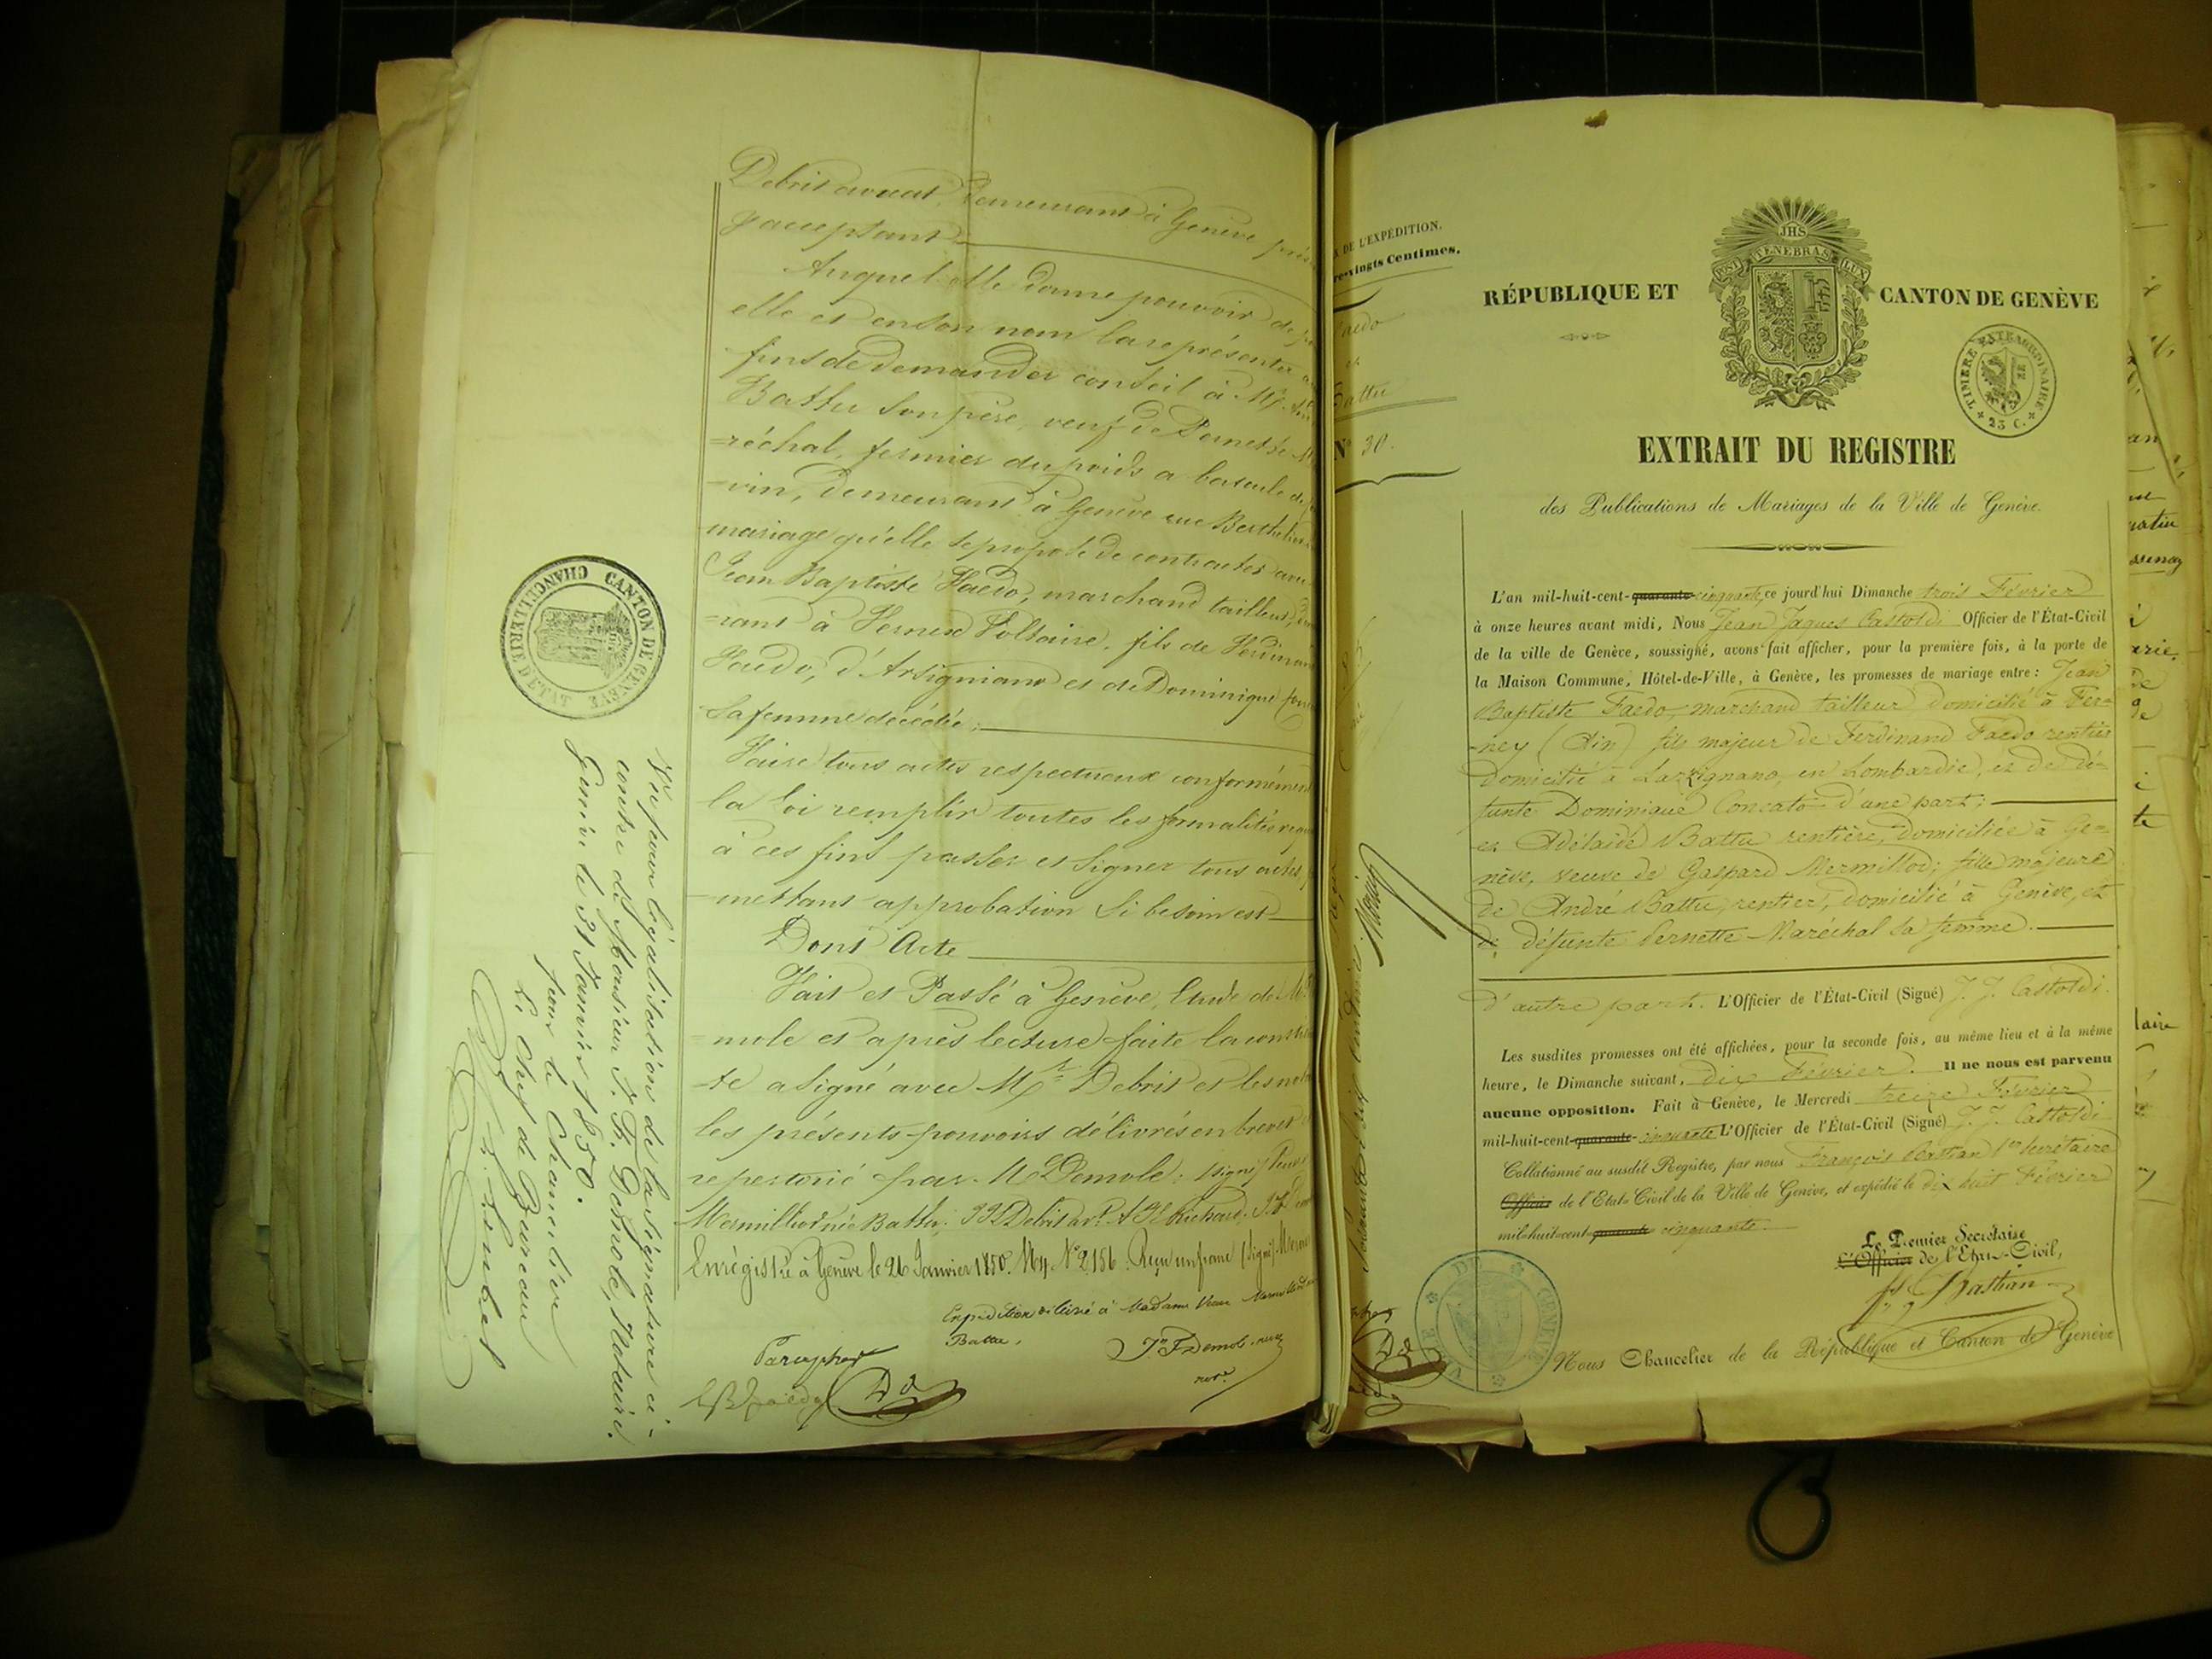 Debrit avocat, demeurant à Genève
y acceptant.
Auquel elle donne pouvoir de
elle et en son nom la représenter
fins de demander conseil à Mr.
Battu son père, veuf de Pernette
=réchal, fermier du poids a bascule de
=vin, demeurant à Genève rue Berthelier
mariage qu'elle se propose de contracter avec
Jean Baptiste Faedo, marchand tailleur,
=rant à Fernex Voltaire, fils de
Faedo, d'Arsigniano et de Dominique
sa femme décédée;
Faire tous actes respectueux conformément
la loi remplir toutes les formalités
à ces fins passer et signer tous actes
=mettant approbation si besoin est
Dont Acte
Fait et Passé à Genève, Etude de Me
=mole et après lecture faite la
=te a signé avec Mr Debrit et les
les présents pouvoirs délivrés en brevet
repertorié par Me Demole: signé
Mermillod née Battu;
Enrégistré à Genève le 26 Janvier 1850. No 2156. Reçu un franc (Signé)
Expédition délivré à Madame Veuve
Battu.
CANTON DE GENÈVE
CHANCELLERIE D'ETAT
Vu pour légalisation de la signature ci
contre de Monsieur J. F. Demole, Notaire.
Genève le 31 Janvier 1850.
pour le Chancelier
Le Chef de Bureau
DE L'EXPÉDITION.
Centimes.
Faedo
et
Battu
No 30.
JHS
POST TENEBRAS LUX
RÉPUBLIQUE ET CANTON DE GENÈVE
TIMBRE EXTRAORDINAIRE
25 C.
EXTRAIT DU REGISTRE
des Publications de Mariages de la Ville de Genève.
L'an mil-huit-cent-quarante-cinquante, ce jourd'hui Dimanche trois Février
à onze heures avant midi, Nous Jean Jaques Castoldi Officier de l'État-Civil
de la ville de Genève, soussigné, avons fait afficher, pour la première fois, à la porte de
la Maison Commune, Hôtel-de-Ville, à Genève, les promesses de mariage entre: Jean
Baptiste Faedo, marchand tailleur domicilié à Fer=
=ney (Ain) fils majeur de Ferdinand Faedo rentier
domicilié à Larzignano, en Lombardie, et de dé=
funte Dominique Concato d'une part;
et Adélaïde Battu rentière, domiciliée à Ge=
nève, veuve de Gaspard Mermillod; fille majeure
de André Battu, rentier, domicilié à Genève, et
de défunte Pernette Maréchal sa femme.
d'autre part. L'Officier de l'État-Civil (Signé) J. J. Castoldi.
Les susdites promesses ont été affichées, pour la seconde fois, au même lieu et à la même
heure, le Dimanche suivant, dix Février. Il ne nous est parvenu
aucune opposition. Fait à Genève, le Mercredi treize Février
mil-huit-cent-quarante-cinquante L'Officier de l'État-Civil (Signé) J. J. Castoldi
Collationné au susdit Registre, par nous François Bastian 1er Secrétaire
Officier de l'Etat-Civil de la Ville de Genève, et expédié le dix huit Février
mil-huit-cent-quarante cinquante.
Le Premier Secrétaire
L'Officier de l'Etat-Civil,
Bastian
VILLE DE GENÈVE
Nous Chancelier de la République et Canton de Genève